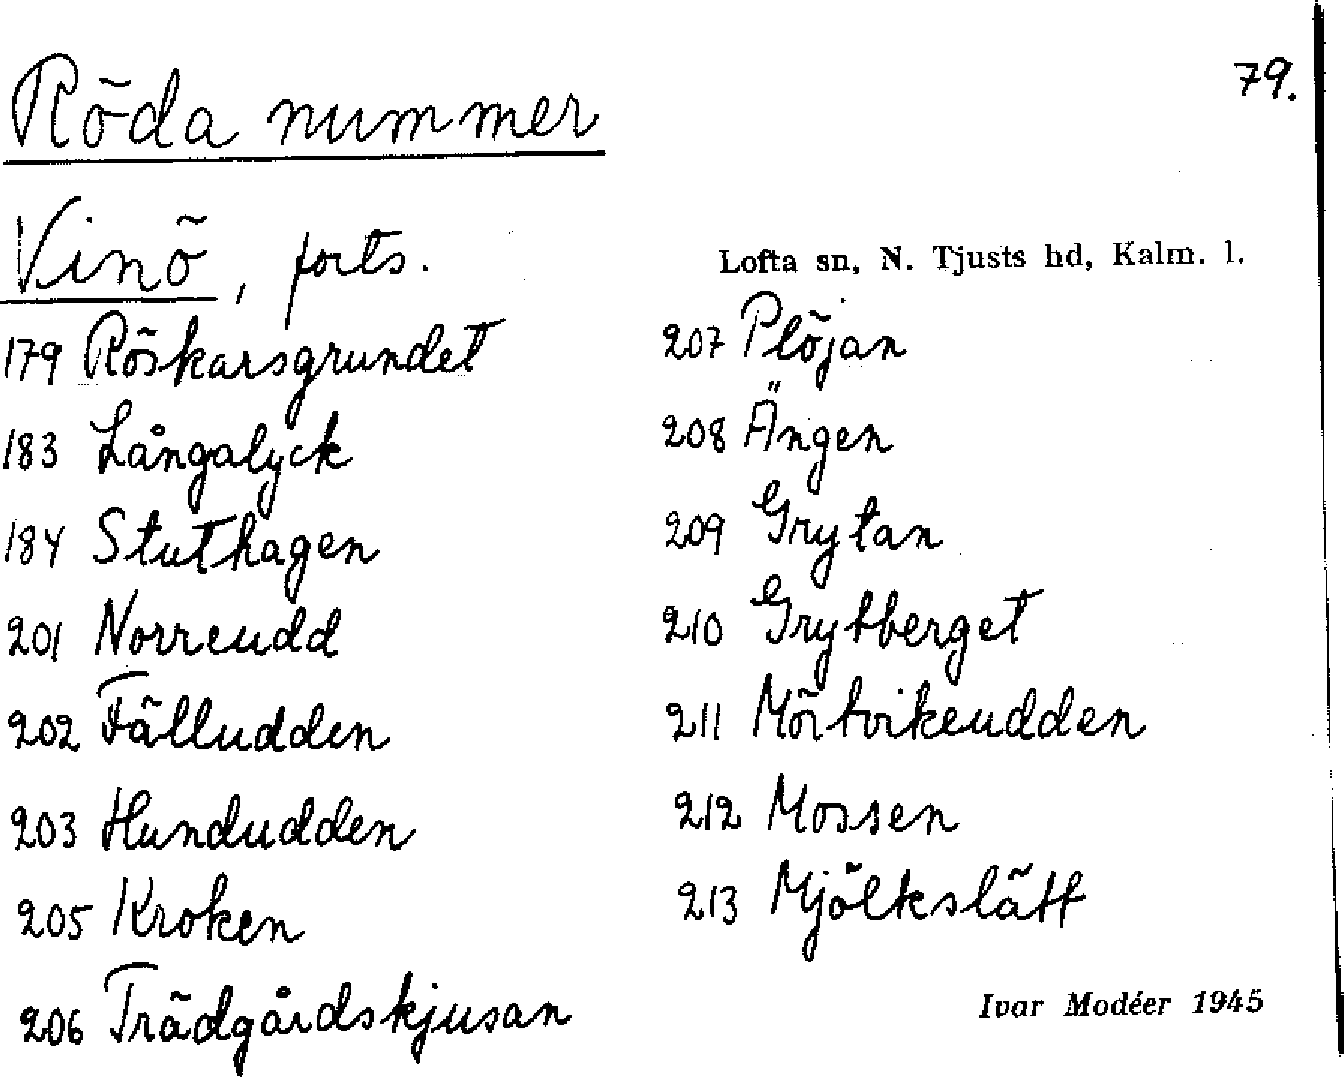 79.
Röda nummer
Vinö, forts.
Lofta sn, N. Tjusts hd, Kalm. l.
179 Röskarsgrundet
183 Långalyck
184 Stuthagen
201 Norreudd
202 Fälludden
203 Hundudden
205 Kroken
206 Trädgårdskjusan
207 Plöjan
208 Ängen
209 Grytan
210 Grytberget
211 Mörtvikeudden
212 Mossen
213 Mjölkslätt
Ivar Modéer 1945